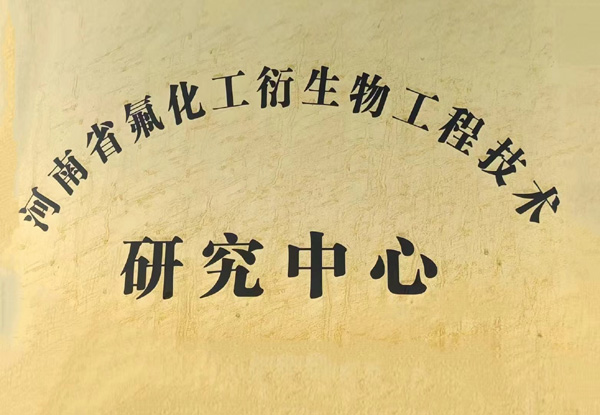 河南省氟化工衍生物工程技术
研究中心